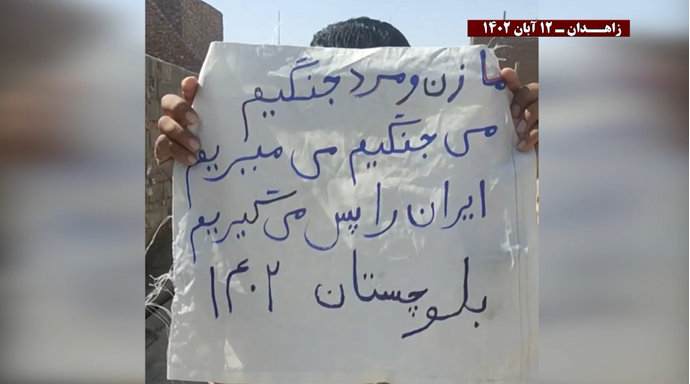 زاهـدان ـ ۱۲ آبان ۱۴۰۲
ما زن و مرد جنگیم
می جنگیم می میریم
ایران را پس می گیریم
بلوچستان ۱۴۰۲